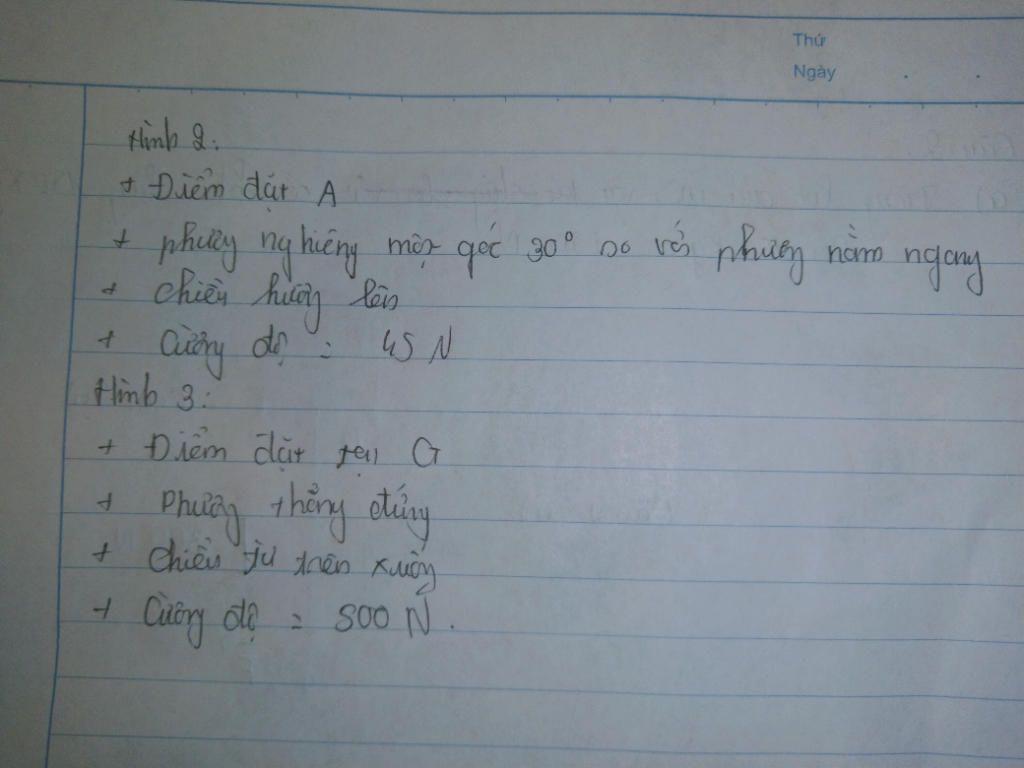 Thứ
Ngày
Hình 2:
+ Điểm đặt A
+ phương nghiêng một góc 30° so với phương nằm ngang
+ chiều hướng lên
+ Cường độ = 45 N
Hình 3:
+ Điểm đặt tại G
+ Phương thẳng đứng
+ chiều từ trên xuống
+ Cường độ = 500 N.